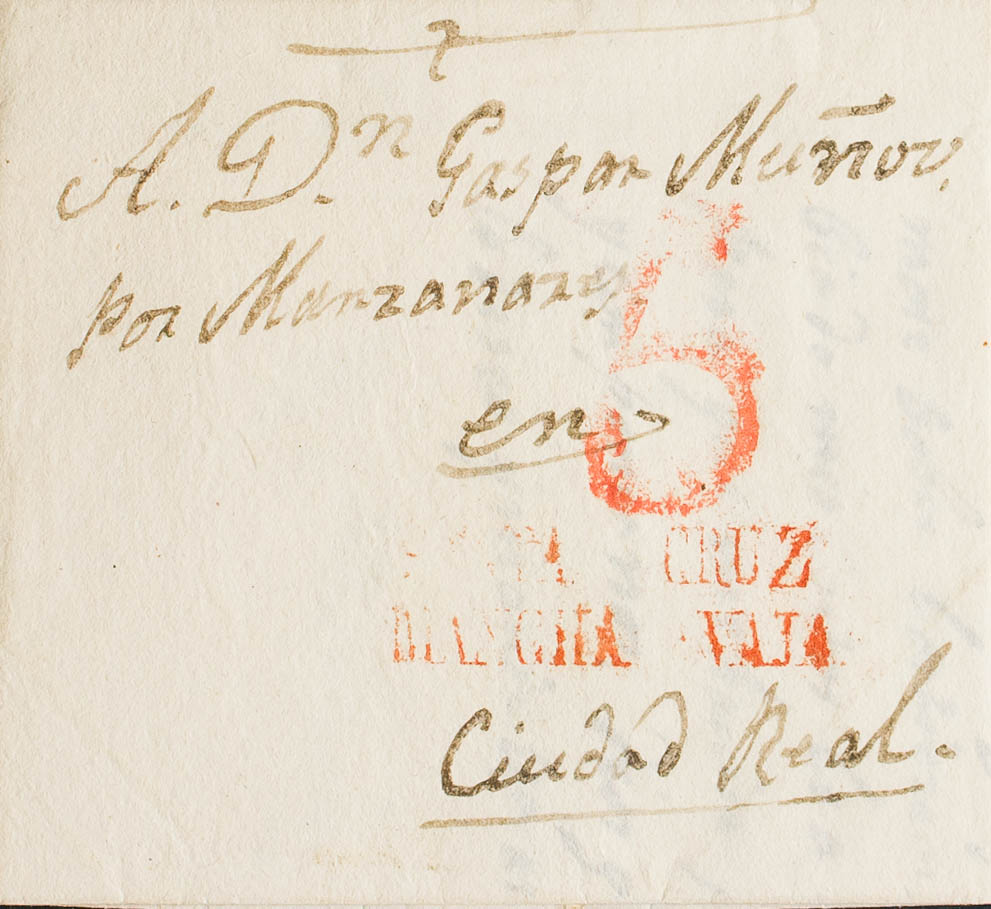 A. Dⁿ. Gaspar Muñoz,
por Manzanares.
en
5
CRUZ
MANCHA VAJA
Ciudad Real.